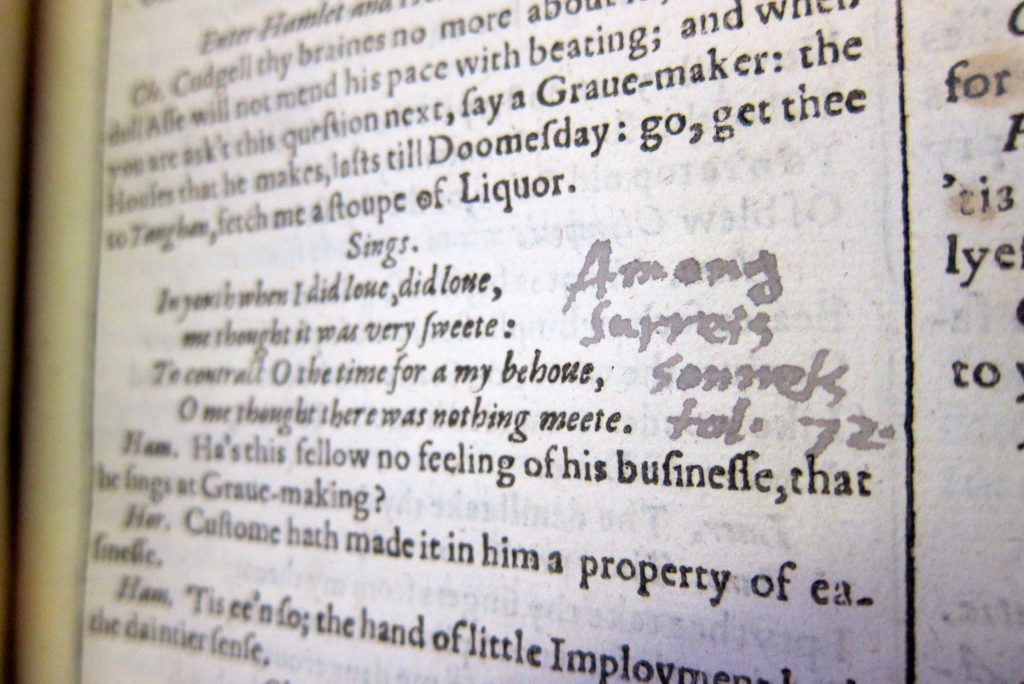 Enter Hamlet and
Clo. Cudgell thy braines no more about
dull Asse will not mend his pace with beating; and when
you are ask't this queſtion next, ſay a Graue-maker: the
Houſes that he makes, laſts till Doomeſday: go, get thee
to Taughan, fetch me a ſtoupe of Liquor.
Sings.
In youth when I did loue, did loue,
me thought it was very ſweete:
To contract O the time for a my behoue,
O me thought there was nothing meete.
Among
Surreis
sonnets
fol. 72.
Ham. Ha's this fellow no feeling of his buſineſſe, that
he ſings at Graue-making?
Hor. Cuſtome hath made it in him a property of ea-
ſineſſe.
Ham. 'Tis ee'n ſo; the hand of little Imploymen
the daintier ſenſe.
for
'tis
to